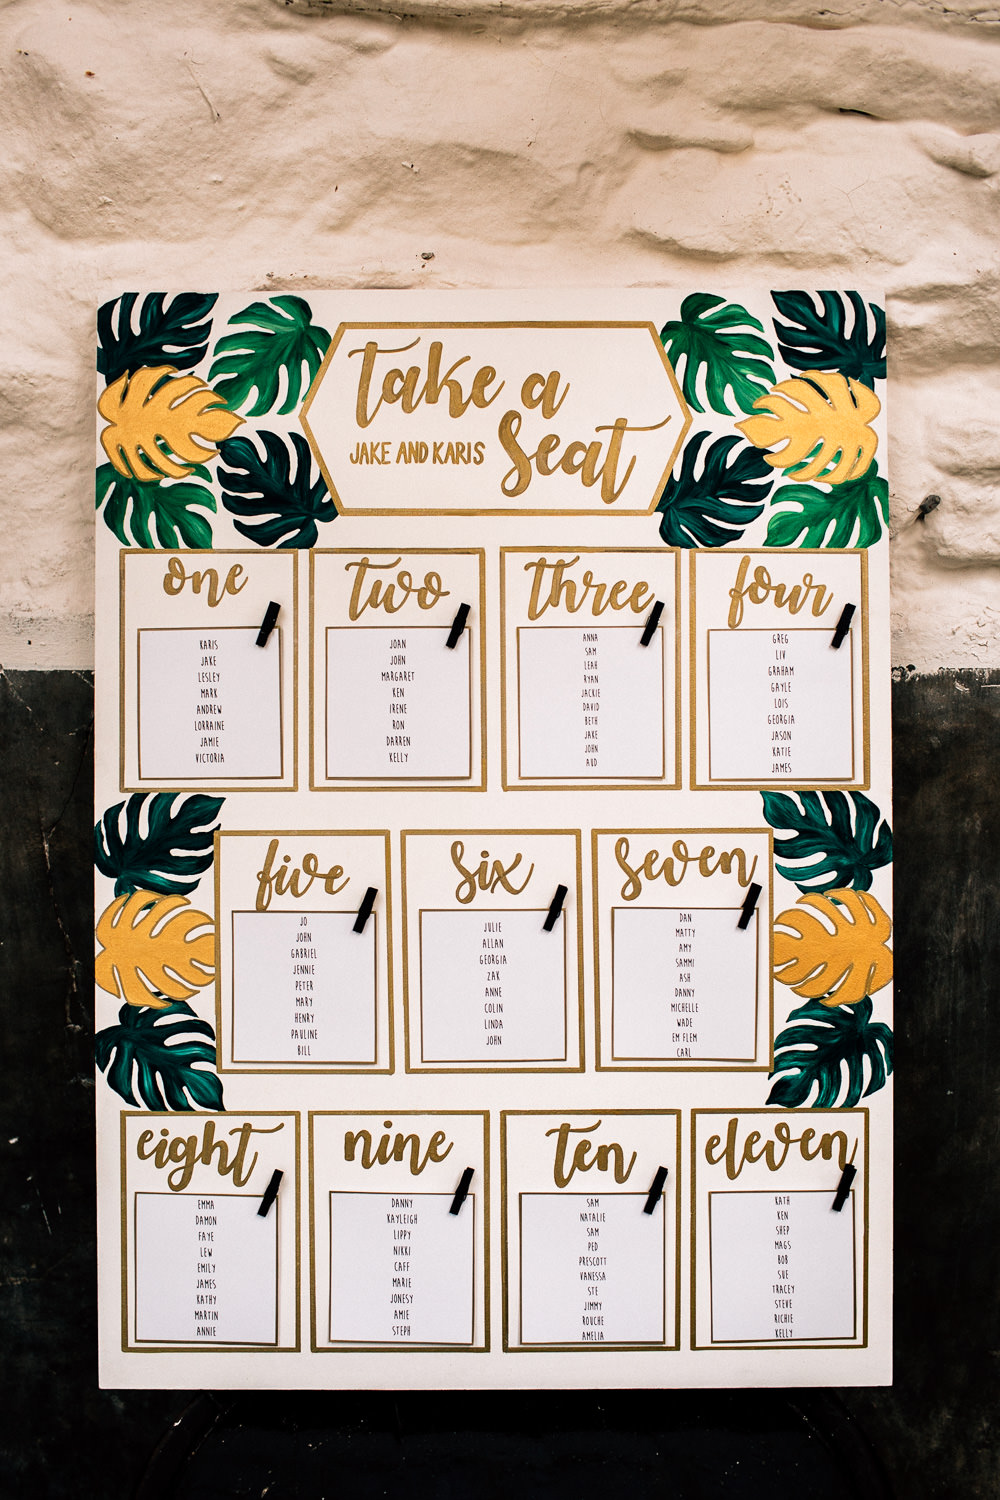 take a
JAKE AND KARIS
Seat
one
KARIS
JAKE
LESLEY
MARK
ANDREW
LORRAINE
JAMIE
VICTORIA
two
JOAN
JOHN
MARGARET
KEN
IRENE
RON
DARREN
KELLY
three
ANNA
SAM
LEAH
RYAN
JACKIE
DAVID
BETH
JAKE
JOHN
AUD
four
GREG
LIV
GRAHAM
GAYLE
LOIS
GEORGIA
JASON
KATIE
JAMES
five
JO
JOHN
GABRIEL
JENNIE
PETER
MARY
HENRY
PAULINE
BILL
six
JULIE
ALLAN
GEORGIA
ZAK
ANNE
COLIN
LINDA
JOHN
seven
DAN
MATTY
AMY
SAMMI
ASH
DANNY
MICHELLE
WADE
EM FLEM
CARL
eight
EMMA
DAMON
FAYE
LEW
EMILY
JAMES
KATHY
MARTIN
ANNIE
nine
DANNY
KAYLEIGH
LIPPY
NIKKI
CAFF
MARIE
JONESY
AMIE
STEPH
ten
SAM
NATALIE
SAM
PED
PRESCOTT
VANESSA
STE
JIMMY
ROUCHE
AMELIA
eleven
KATH
KEN
SHEP
MAGS
BOB
SUE
TRACEY
STEVE
RICHIE
KELLY